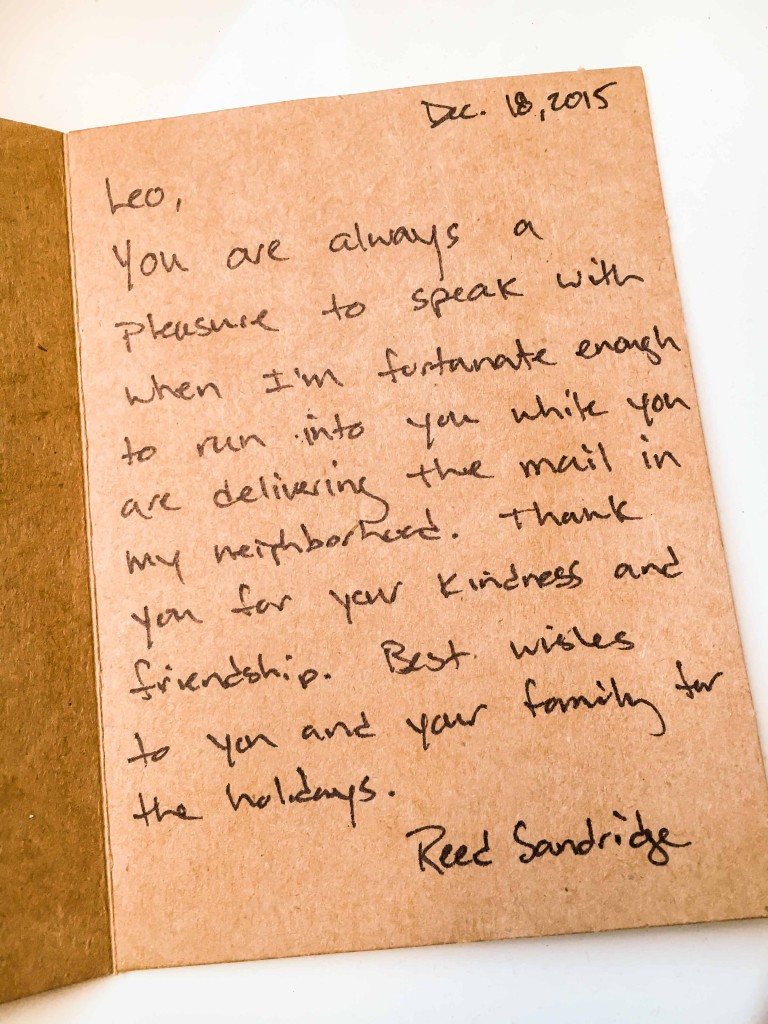 Dec. 18, 2015
Leo,
You are always a
pleasure to speak with
when I'm fortunate enough
to run into you while you
are delivering the mail in
my neighborhood. Thank
you for your kindness and
friendship. Best wishes
to you and your family for
the holidays.
Reed Sandridge